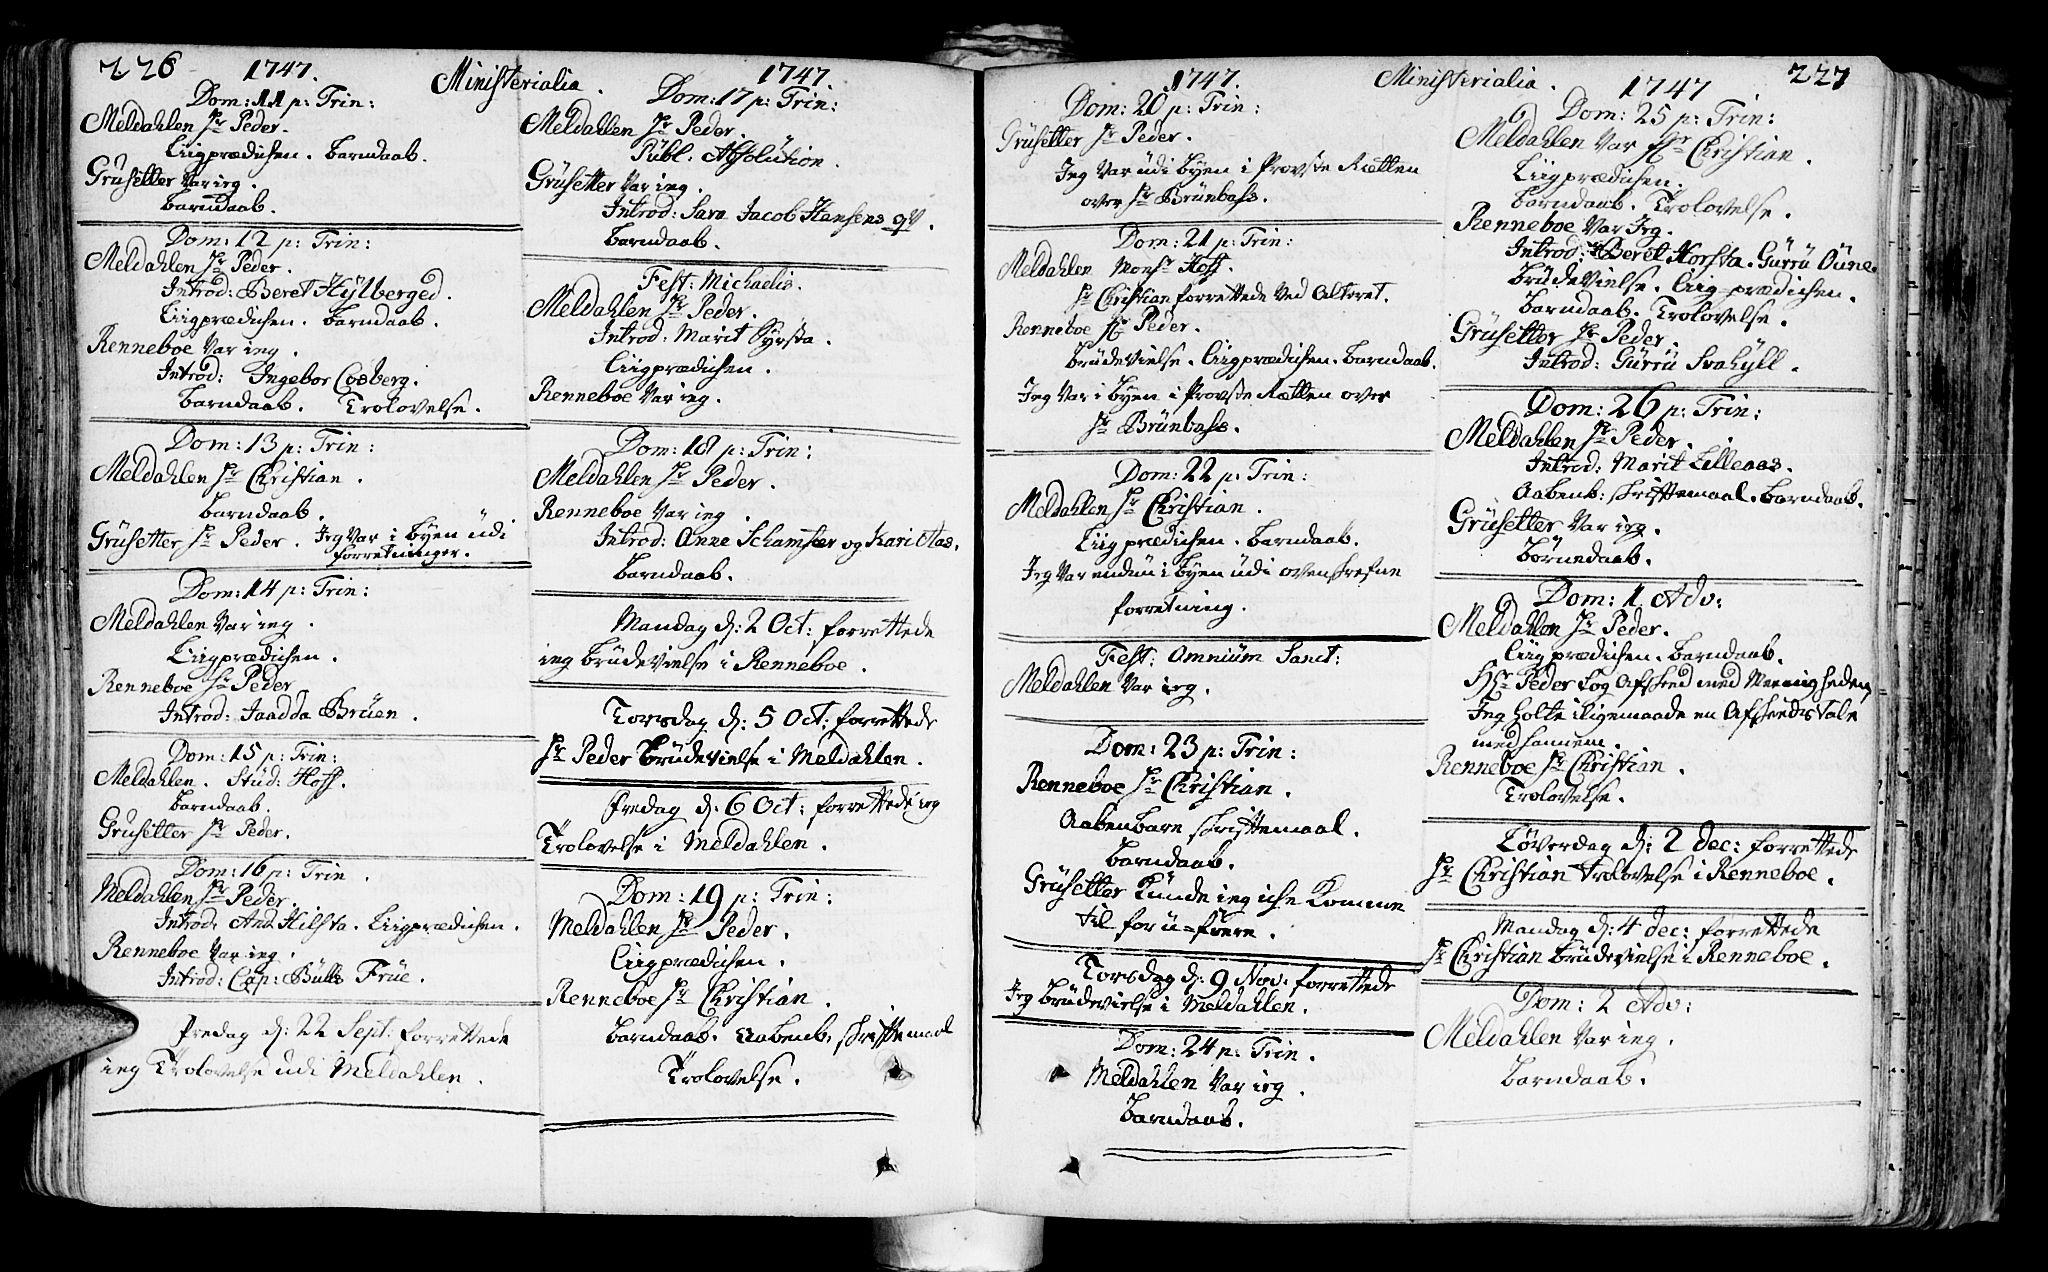 226 1747. Ministerialia. 1747.
Dom: 11 p: Trin:
Meldahlen Hr Peder.
Liigprædichen. Barndaab.
Grüsetter Var ieg.
Barndaab.
Dom: 12 p: Trin:
Meldahlen Hr Peder.
Introd: Beret Hÿlberged.
Liigprædichen. Barndaab.
Renneboe Var ieg.
Introd: Ingebor Cosberg.
Barndaab. Trolovelse.
Dom: 13 p: Trin:
Meldahlen Hr Christian.
Barndaab.
Grüsetter Hr Peder. Jeg Var i Byen üdi
forretninger.
Dom: 14 p: Trin:
Meldahlen Var ieg.
Liigprædichen.
Renneboe Hr Peder
Introd: Jaadda Brüen.
Dom: 15 p: Trin:
Meldahlen. Stud: Hoff.
Barndaab.
Grüsetter Hr Peder.
Dom: 16 p: Trin.
Meldahlen Hr Peder.
Introd: And Hilsta. Liigprædichen.
Renneboe Var ieg.
Introd: Cap: Bülls Früe.
Fredag d: 22 Sept: forrettede
ieg Trolovelse udi Meldahlen.
Dom: 17 p: Trin:
Meldahlen Hr Peder.
Pübl: Absolution.
Grüsetter Var ieg.
Introd: Sara Jacob Hansens qv.
Barndaab.
Fest: Michaelis.
Meldahlen Hr Peder.
Introd: Marit Syrsta.
Liigprædichen.
Renneboe Var ieg.
Dom: 18 p: Trin:
Meldahlen Hr Peder.
Renneboe Var ieg.
Introd: Anne Schamfær og Kari Aas.
Barndaab.
Mandag d: 2 Oct: forrettede
ieg Brüdevielse i Renneboe.
Torsdag d: 5 Oct: forrettede
Hr Peder Brüdevielse i Meldahlen.
Fredag d: 6 Oct: forrettede ieg
Trolovelse i Meldahlen.
Dom: 19 p: Trin:
Meldahlen Hr Peder.
Liigprædichen.
Renneboe Hr Christian.
Barndaab. Aabenb. skriftemaal
Trolovelse.
1747. Ministerialia. 1747 227
Dom: 20 p: Trin:
Grüsetter Hr Peder.
Jeg Var üdi Byen i Provste Rætten
over Hr Brünbass.
Dom: 21 p: Trin:
Meldahlen Monsr Hoff.
Hr Christian forrettede Ved Alteret.
Renneboe Hr Peder.
Brüdevielse. Liigprædichen. Barndaab.
Jeg Var i Byen i Provste Rætten over
Hr Brünbass.
Dom: 22 p: Trin:
Meldahlen Hr Christian.
Liigprædichen. Barndaab.
Jeg Var endnü i Byen üdi ovenskrefne
forretning.
Fest: Omniüm Sanct:
Meldahlen Var ieg.
Dom: 23 p: Trin:
Renneboe Hr Christian.
Aabenbare skriftemaal.
Barndaab.
Grüsetter Künde ieg iche Komme
til for ü-føere.
Torsdag d: 9 Nov: forrettede
Jeg Brüdevielse i Meldahlen.
Dom: 24 p: Trin.
Meldahlen Var ieg.
Barndaab.
Dom: 25 p: Trin:
Meldahlen Var Hr Christian.
Liigprædichen.
Barndaab. Trolovelse.
Renneboe Var Jeg.
Introd: Beret Horsta. Gürrü Oüne.
Brüdevielse. Liig-prædichen.
Barndaab. Trolovelse.
Grüsetter Hr Peder.
Introd: Gürrü Svahÿll.
Dom: 26 p: Trin:
Meldahlen Hr Peder.
Introd: Marit Lilleaas.
Aabenb: skriftemaal. Barndaab.
Grüsetter Var ieg.
Børnedaab.
Dom: 1 Adv:
Meldahlen Hr Peder.
Liigprædichen. Barndaab.
Hr Peder tog Afskeed med Meenigheden
Jeg holte iligemaade en Afskeeds tale
med hannem.
Renneboe Hr Christian.
Trolovelse.
Løverdag d: 2 Dec: forrettede
Hr Christian Trolovelse i Renneboe.
Mandag d: 4 dec: forrettede
Hr Christian Brüdevielse i Renneboe.
Dom: 2 Adv:
Meldahlen Var ieg.
Barndaab.